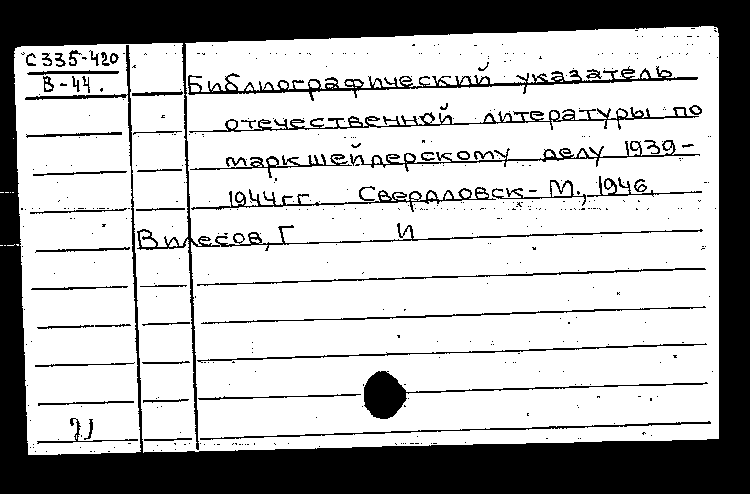 С335-420
В-44.
Библиографический указатель
отечественной литературы по
маркшейдерскому делу 1939-
1944гг. Свердловск-М., 1946.
Вилесов, Г И